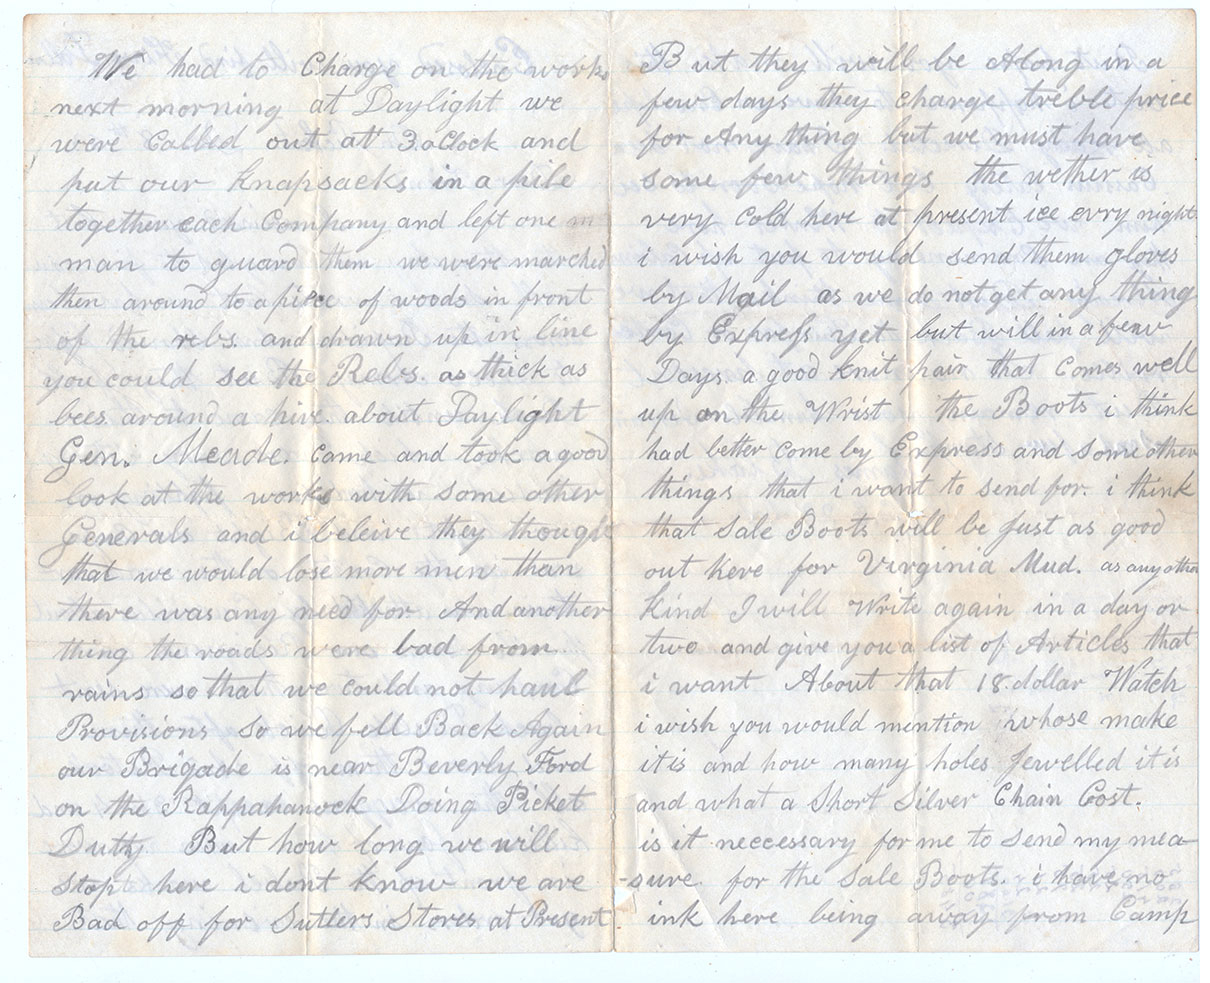 We had to Charge on the works
next morning at Daylight we
were Called out at 3 oClock and
put our Knapsacks in a pile
together each Company and left one m
man to guard them we were marched
then around to a piece of woods in front
of the rebs. and drawn up in line
you could see the Rebs. as thick as
bees around a hive. about Daylight
Gen. Meade. Came and took a good
look at the works with some other
Generals and i beleive they thought
that we would lose more men than
there was any need for And another
thing the roads were bad from
rains so that we could not haul
Provisions so we fell Back Again
our Brigade is near Beverly Ford
on the Rappahanock Doing Picket
Dutty. But how long we will
stop here i dont know we are
Bad off for Sutlers Stores at Present
But they will be Along in a
few days they charge treble price
for Any thing but we must have
some few things the wether is
very Cold here at present ice evry night
i wish you would send them gloves
by Mail as we do not get any thing
by Express yet but will in a few
Days. a good knit pair that Comes well
up on the Wrist the Boots i think
had better come by Express and some other
things that i want to send for. i think
that Sale Boots will be Just as good
out here for Virginia Mud. as any other
Kind I will Write again in a day or
two and give you a list of Articles that
i want About that 18 dollar Watch
i wish you would mention whose make
it is and how many holes Jewelled it is
and what a Short Silver Chain Cost.
is it neccessary for me to send my mea-
-sure. for the Sale Boots. i have no
ink here being away from Camp